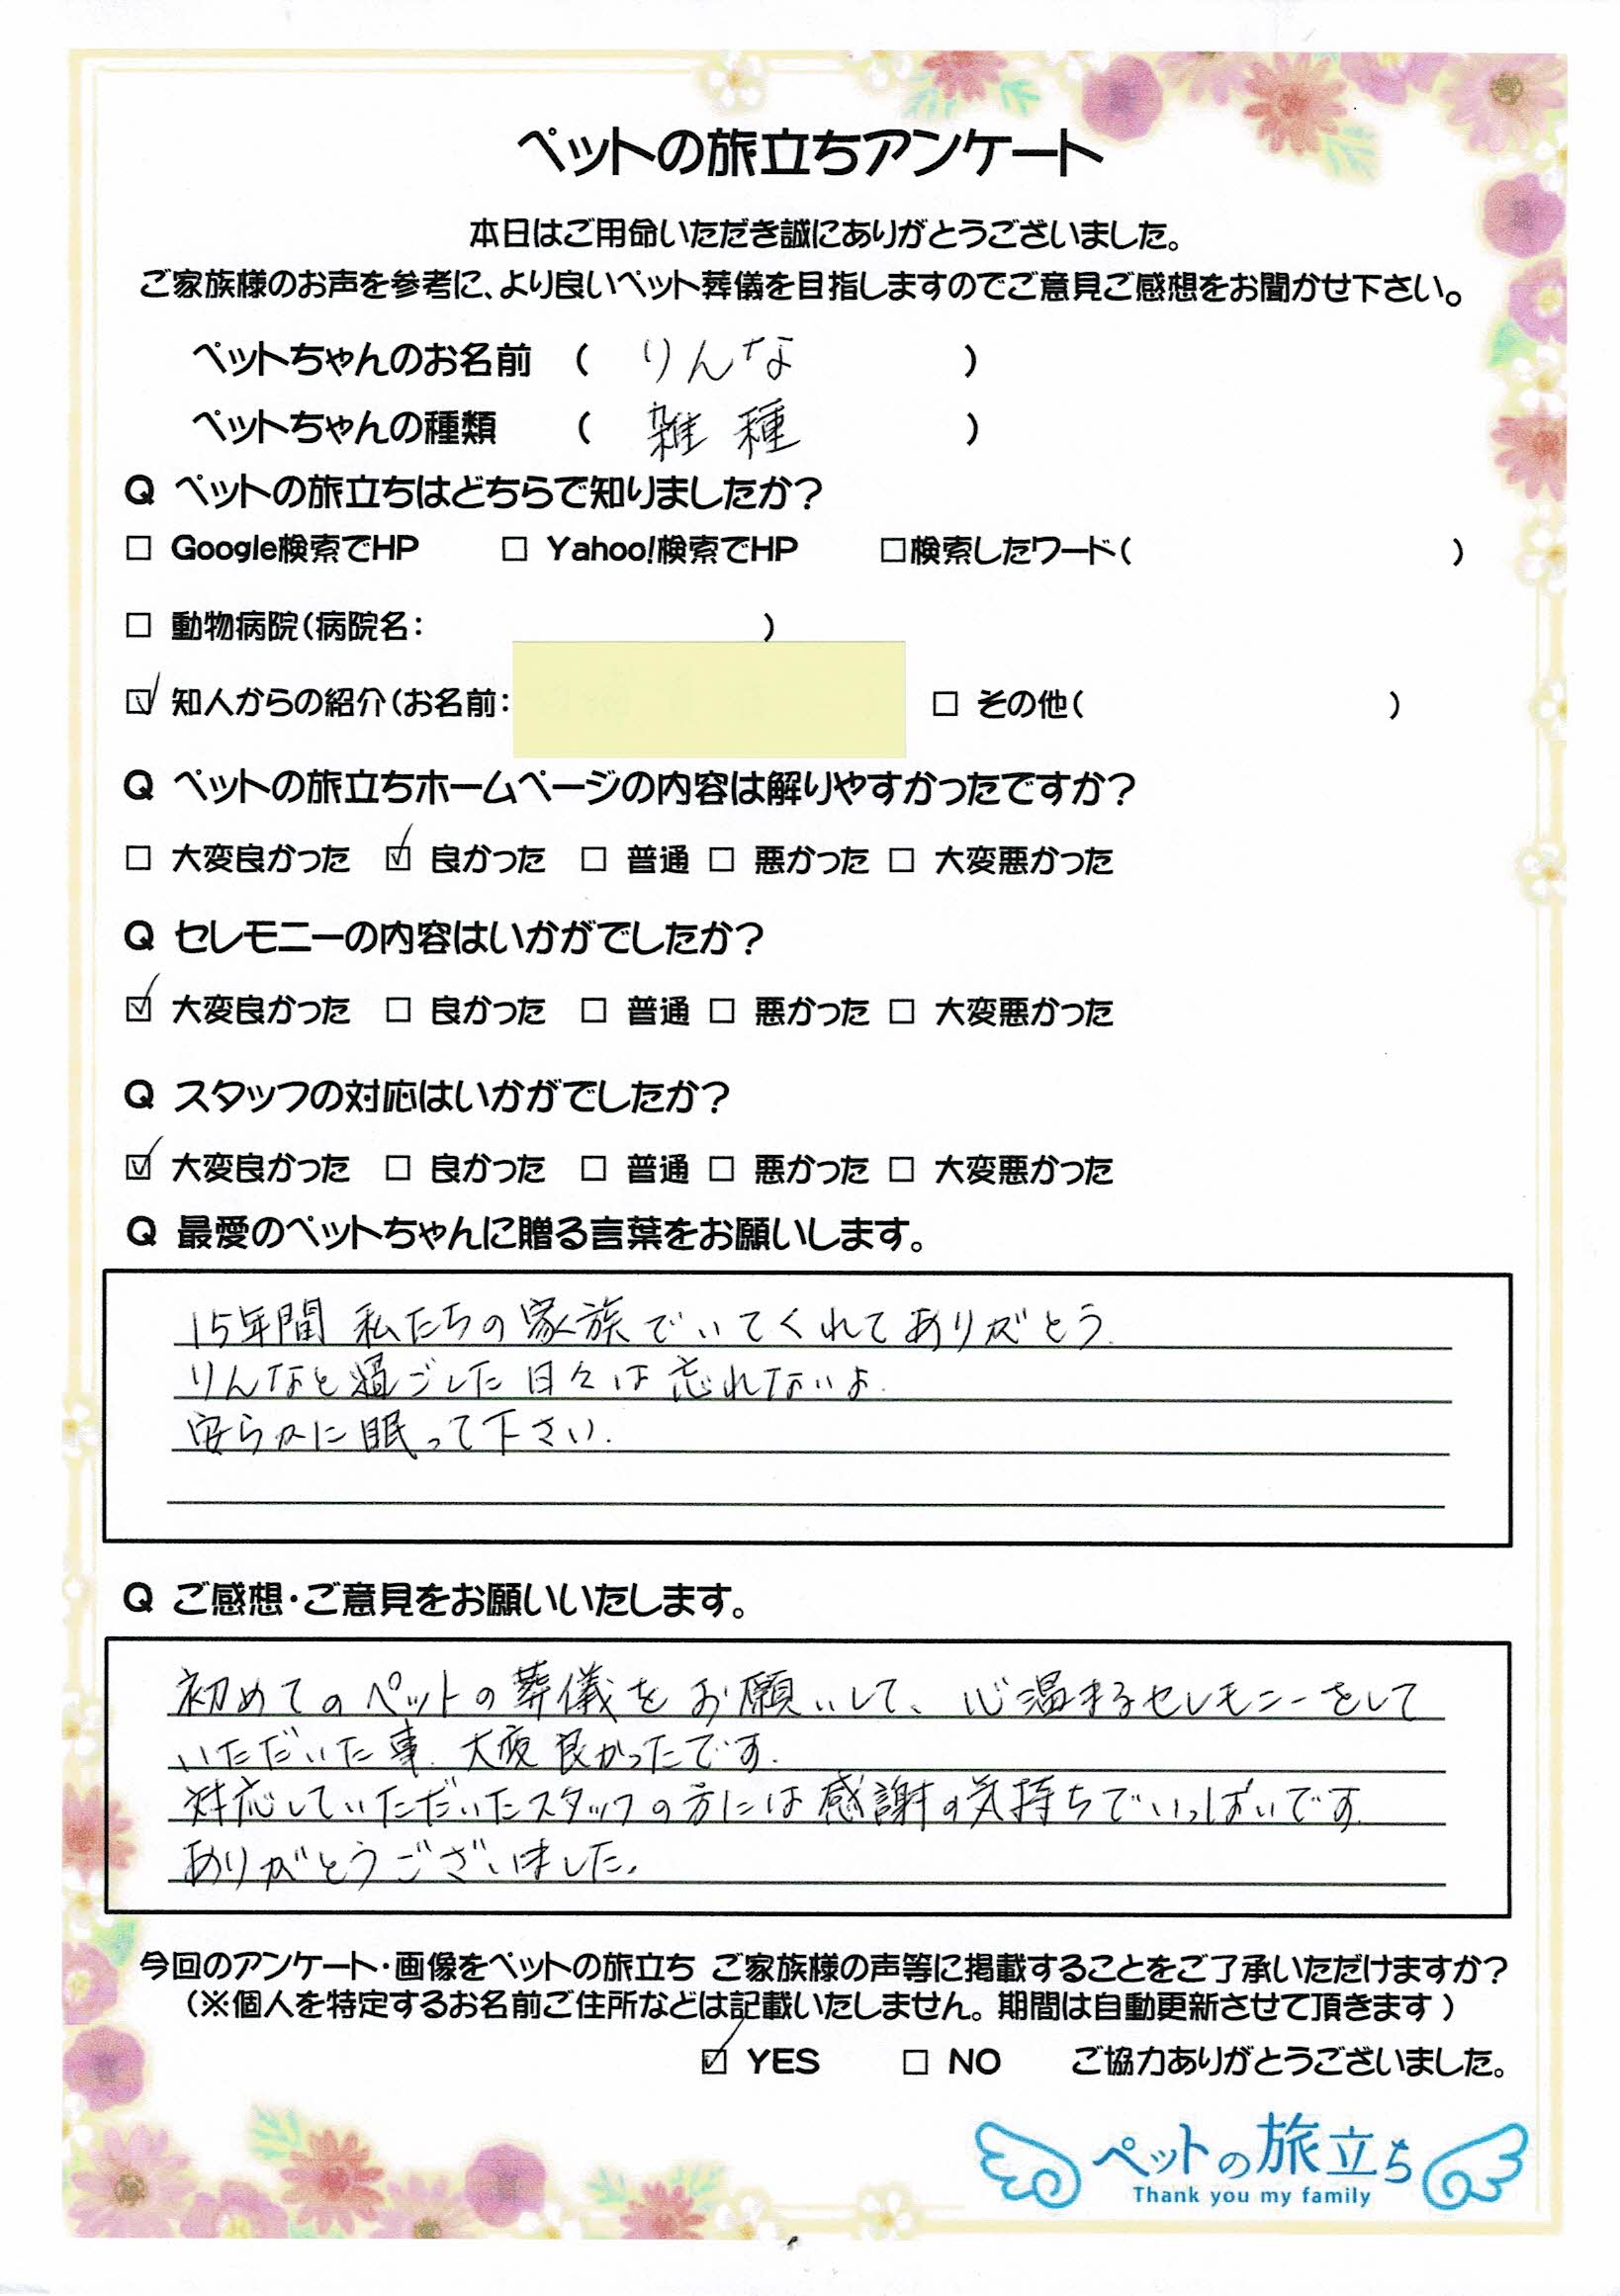 ペットの旅立ちアンケート
本日はご用命いただき誠にありがとうございました。
ご家族様のお声を参考に、より良いペット葬儀を目指しますのでご意見ご感想をお聞かせ下さい。
ペットちゃんのお名前 ( りんな )
ペットちゃんの種類 ( 雑種 )
Q ペットの旅立ちはどちらで知りましたか?
□ Google検索でHP □ Yahoo!検索でHP □検索したワード( )
□ 動物病院(病院名: )
☑ 知人からの紹介(お名前: □ その他( )
Q ペットの旅立ちホームページの内容は解りやすかったですか?
□ 大変良かった ☑ 良かった □ 普通 □ 悪かった □ 大変悪かった
Q セレモニーの内容はいかがでしたか?
☑ 大変良かった □ 良かった □ 普通 □ 悪かった □ 大変悪かった
Q スタッフの対応はいかがでしたか?
☑ 大変良かった □ 良かった □ 普通 □ 悪かった □ 大変悪かった
Q 最愛のペットちゃんに贈る言葉をお願いします。
15年間 私たちの家族でいてくれてありがとう.
りんなと過ごした日々は忘れないよ.
安らかに眠って下さい.
Q ご感想・ご意見をお願いいたします。
初めてのペットの葬儀をお願いして、心温まるセレモニーをして
いただいた事. 大変良かったです.
対応していただいたスタッフの方には感謝の気持ちでいっぱいです.
ありがとうございました.
今回のアンケート・画像をペットの旅立ち ご家族様の声等に掲載することをご了承いただけますか?
(※個人を特定するお名前ご住所などは記載いたしません。期間は自動更新させて頂きます)
☑ YES □ NO ご協力ありがとうございました。
ペットの旅立ち
Thank you my family